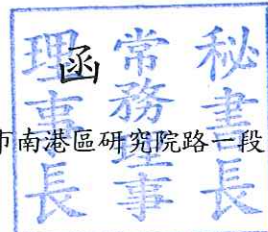 函
市南港區研究院路一段
秘書長
常務理事
理事長